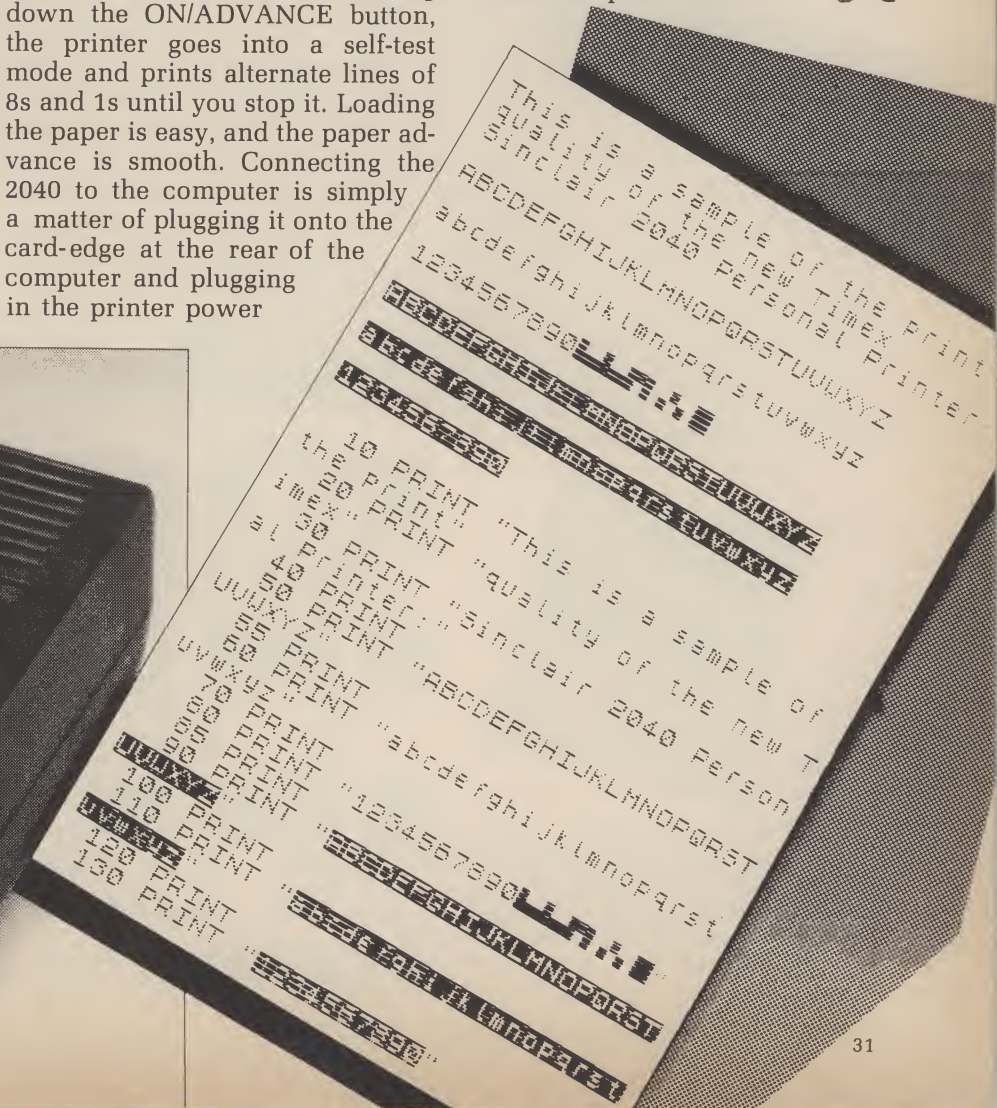 down the ON/ADVANCE button,
the printer goes into a self-test
mode and prints alternate lines of
8s and 1s until you stop it. Loading
the paper is easy, and the paper ad-
vance is smooth. Connecting the
2040 to the computer is simply
a matter of plugging it onto the
card-edge at the rear of the
computer and plugging
in the printer power
This is a sample of the print
quality of the new Timex
Sinclair 2040 Personal Printer.
ABCDEFGHIJKLMNOPQRSTUVWXYZ
abcdefghijklmnopqrstuvwxyz
1234567890
ABCDEFGHIJKLMNOPQRSTUVWXYZ
abcdefghijklmnopqrstuvwxyz
1234567890
10 PRINT "This is a sample of
the print"
20 PRINT "quality of the new T
imex"
30 PRINT "Sinclair 2040 Person
al Printer."
40 PRINT
50 PRINT "ABCDEFGHIJKLMNOPQRST
UVWXYZ"
55 PRINT
60 PRINT "abcdefghijklmnopqrst
uvwxyz"
70 PRINT
80 PRINT "1234567890"
85 PRINT
90 PRINT "ABCDEFGHIJKLMNOPQRST
UVWXYZ"
100 PRINT
110 PRINT "abcdefghijklmnopqrst
uvwxyz"
120 PRINT
130 PRINT "1234567890"
31